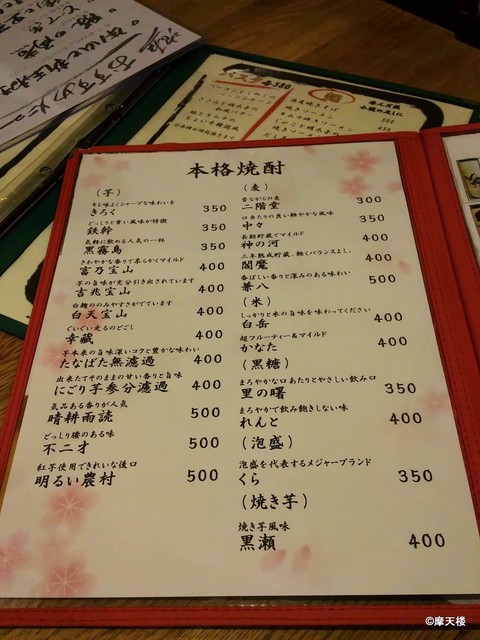 本格焼酎
（芋）
キレ味よくシャープな味わいを
きろく 350
どっしりと重い風味が特徴
鉄幹 350
気軽に飲める人気の一杯
黒霧島 350
さわやかな香りで柔らかくマイルド
富乃宝山 400
芋の旨味が充分引き出されています
吉兆宝山 400
白麹ののみやすさがでています
白天宝山 400
ぐいぐい走るのどごし
幸蔵 400
芋本来の旨味深いコクと豊かな味わい
たなばた無濾過 400
出来たてそのままの甘い香りと旨味
にごり芋参分濾過 400
気品ある香りが人気
晴耕雨読 500
どっしり腰のある味
不二才 500
紅芋使用できれいな後口
明るい農村 500
（麦）
昔ながらの麦
二階堂 300
口当たりの良い軽やかな風味
中々 350
長期貯蔵でマイルド
神の河 400
三年熟成貯蔵、軽くバランスよし、
閻魔 400
香ばしい香りと深みのある味わい
兼八 500
（米）
しっかりと米の旨味を味わってください
白岳 400
超フルーティー＆マイルド
かなた 400
（黒糖）
まろやかな口あたりとやさしい飲み口
里の曙 350
まろやかで飲み飽きしない味
れんと 400
（泡盛）
泡盛を代表するメジャーブランド
くら 350
（焼き芋）
焼き芋風味
黒瀬 400
パスタ各580
©摩天楼